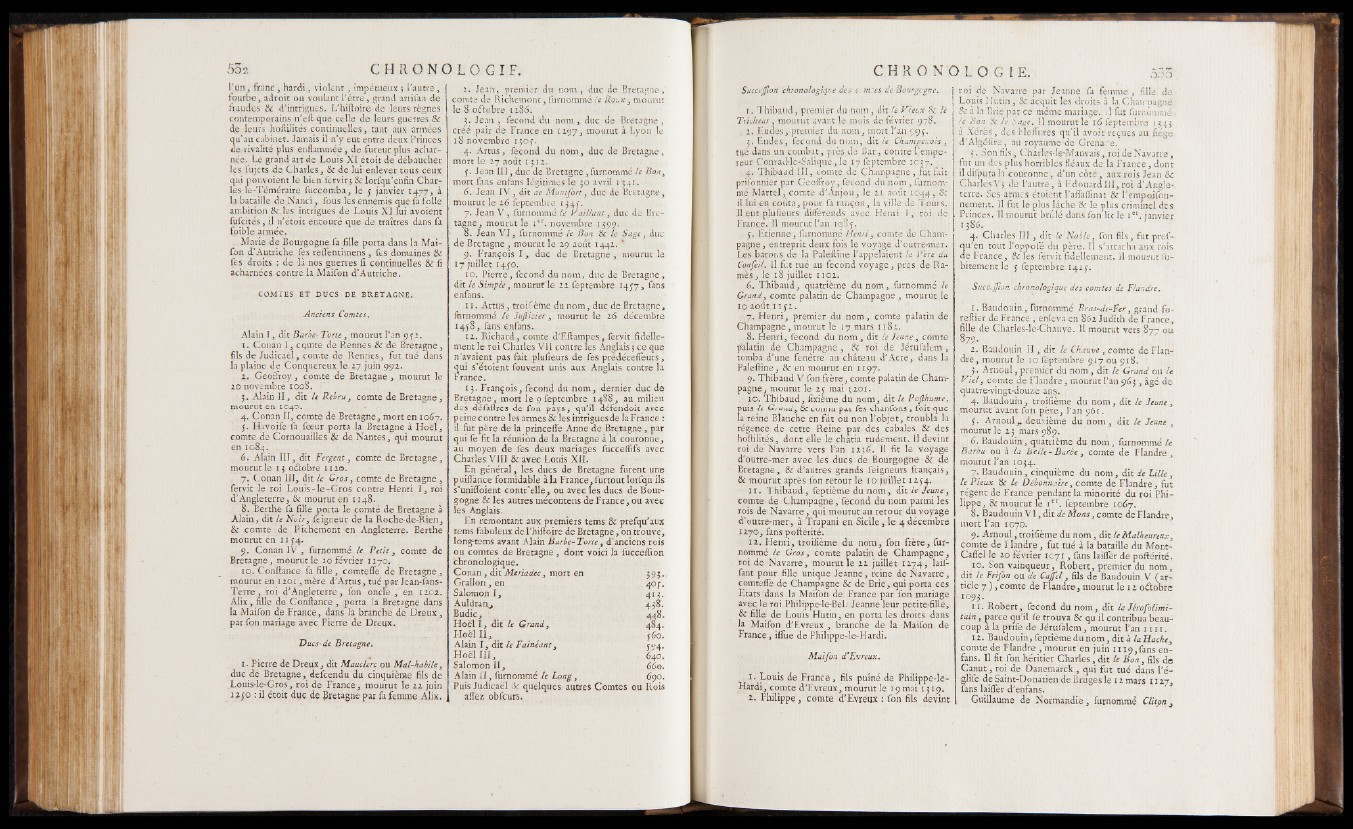 532 CHRONOLOGIE.
l'un, franc, hardi, violent, impétueux ; l'autre,
fourbe, adroit ou voulant l'être, grand artisan de
fraudes & d'intrigues. L'histoire de leurs règnes
contemporains n'est que celle de leurs guerres &
de leurs hostilités continuelles, tant aux armées
qu'au cabinet. Jamais il n'y eut entre deux Princes
de rivalité plus enflammée, de fureur plus achar-
née. Le grand art de Louis XI étoit de débaucher
les sujets de Charles, & de lui enlever tous ceux
qui pouvoient le bien servir ; & lorsqu'enfin Char-
les le-Téméraire succomba, le 5 janvier 1477, à
la bataille de Nanci, sous les ennemis que sa folle
ambition & les intrigues de Louis XI lui avoient
suscités, il n'étoit entouré que de traîtres dans sa
foible armée.
Marie de Bourgogne sa fille porta dans la Mai-
son d'Autriche ses ressentimens, ses domaines &
ses droits : de là nos guerres si continuelles & si
acharnées contre la Maison d'Autriche.
COMTES ET DUCS DE BRETAGNE.
Anciens Comtes.
Alain I, dit Barbe-Torte, mourut l'an 952.
1. Conan I, comte de Rennes & de Bretagne,
fils de Judicael, comte de Rennes, fut tué dans
la plaine de Conquereux le 27 juin 992.
2. Geoffroy, comte de Bretagne, mourut le
20 novembre 1008.
3. Alain II, dit le Rebru, comte de Bretagne,
mourut en 1040.
4. Conan II, comte de Bretagne, mort en 1067.
5. Havoise sa sœur porta la Bretagne à Hoël,
comte de Cornouailles & de Nantes, qui mourut
en 1084.
6. Alain III, dit Fergent, comte de Bretagne,
mourut le 13 octobre 1120.
7. Conan III, dit le Gros, comte de Bretagne,
servit le roi Louis-le-Gros contre Henri I, roi
d'Angleterre, & mourut en 1148.
8. Berthe sa fille porta le comté de Bretagne à
Alain, dit le Noir, seigneur de la Roche-de-Rien,
& comte de Richemont en Angleterre. Berthe
mourut en 1154.
9. Conan IV, surnommé le Petit, comte de
Bretagne, mourut le 20 février 1170.
10. Constance sa fille, comtesse de Bretagne,
mourut en 1201, mère d'Artus, tué par Jean-sans-
Terre, roi d'Angleterre, son oncle, en 1202.
Alix, fille de Constance, porta la Bretagne dans
la Maison de France, dans la branche de Dreux,
par son mariage avec Pierre de Dreux.
Ducs de Bretagne.
1. Pierre de Dreux, dit Mauclerc ou Mal-habile,
duc de Bretagne, descendu du cinquième fils de
Louis-le-Gros, roi de France, mourut le 22 juin
1250 : il étoit duc de Bretagne par sa femme Alix.
2. Jean, premier du nom, duc de Bretagne,
comte de Richemont, surnommé le Roux, mourut
le 8 octobre 1286.
3. Jean, second du nom, duc de Bretagne,
créé pair de France en 1297, mourut à Lyon le
18 novembre 1305.
4. Artus, second du nom, duc de Bretagne,
mort le 27 août 1312.
5. Jean III, duc de Bretagne, surnommé le Bon,
mort sans enfans légitimes le 30 avril 1341.
6. Jean IV, dit de Montfort, duc de Bretagne,
mourut le 26 septembre 1345.
7. Jean V, surnommé le Vaillant, duc de Bre-
tagne, mourut le 1er. novembre 1399.
8. Jean VI, surnommé le Bon & le Sage, duc
de Bretagne, mourut le 29 août 1442.
9. François I, duc de Bretagne, mourut le
17 juillet 1450.
10. Pierre, second du nom, duc de Bretagne,
dit le Simple, mourut le 22 septembre 1457, sans
enfans.
11. Artus, troisième du nom, duc de Bretagne,
surnommé le Justicier, mourut le 26 décembre
1458, sans enfans.
12. Richard, comte d'Estampes, servit fidelle-
ment le roi Charles VII contre les Anglais ; ce que
n'avaient pas fait plusieurs de ses prédécesseurs,
qui s'étoient souvent unis aux Anglais contre la
France.
13. François, second du nom, dernier duc de
Bretagne, mort le 9 septembre 1488, au milieu
des désastres de son pays, qu'il défendoit avec
peine contre les armes & les intrigues de la France :
il fut père de la princesse Anne de Bretagne, par
qui se fit la réunion de la Bretagne à la couronne,
au moyen de ses deux mariages successifs avec
Charles VIII & avec Louis XII.
En général, les ducs de Bretagne furent une
puissance formidable à la France, surtout lorsqu'ils
s'unissoient contr'elle, ou avec les ducs de Bour-
gogne & les autres mécontens de France, ou avec
les Anglais.
En remontant aux premiers tems & presqu'aux
tems fabuleux de l'histoire de Bretagne, on trouve,
long-tems avant Alain Barbe-Torte, d'anciens rois
ou comtes de Bretagne, dont voici la succession
chronologique.
Conan, dit Mériadec, mort en 393.
Grallon, en 405.
Salomon I, 413.
Auldran, 438.
Budic, 448.
Hoël I, dit le Grand, 484.
Hoël II, 560.
Alain I, dit le Fainéant, 594.
Hoël III, 640.
Salomon II, 660.
Alain II, surnommé le Long, 690.
Puis Judicael & quelques autres Comtes ou Rois
assez obscurs.
CHRONOLOGIE. 533
Succession chronologique des comtes de Bourgogne.
1. Thibaud, premier du nom, dit le Vieux & le
Tricheur, mourut avant le mois de février 978.
2. Eudes, premier du nom, mort l'an 995.
3. Eudes, second du nom, dit le Champenois,
tué dans un combat, près de Bar, contre l'empe-
reur Conrad-le-Salique, le 17 septembre 1037.
4. Thibaud III, comte de Champagne, fut fait
prisonnier par Geoffroy, second du nom, surnom-
mé Martel, comte d'Anjou, le 21 août 1044, &
il lui en coûta, pour sa rançon, la ville de Tours.
Il eut plusieurs différends avec Henri I, roi de
France. Il mourut l'an 1085.
5. Etienne, surnommé Henri, comte de Cham-
pagne, entreprit deux fois le voyage d'outre-mer.
Les barons de la Palestine l'appelaient le Père du
Conseil. Il fut tué au second voyage, près de Ra-
mès, le 18 juillet 1102.
6. Thibaud, quatrième du nom, surnommé le
Grand, comte palatin de Champagne, mourut le
10 août 1152.
7. Henri, premier du nom, comte palatin de
Champagne, mourut le 17 mars 1182.
8. Henri, second du nom, dit le Jeune, comte
palatin de Champagne, & roi de Jérusalem,
tomba d'une fenêtre au château d'Acre, dans la
Palestine, & en mourut en 1197.
9. Thibaud V son frère, comte palatin de Cham-
pagne, mourut le 25 mai 1201.
10. Thibaud, sixième du nom, dit le Posthume,
puis le Grand, & connu par ses chansons, soit que
la reine Blanche en fût ou non l'objet, troubla la
régence de cette Reine par des cabales & des
hostilités, dont elle le châtia rudement. Il devint
roi de Navarre vers l'an 1236. Il fit le voyage
d'outre-mer avec les ducs de Bourgogne & de
Bretagne, & d'autres grands seigneurs français,
& mourut après son retour le 10 juillet 1254.
11. Thibaud, septième du nom, dit le Jeune,
comte de Champagne, second du nom parmi les
rois de Navarre, qui mourut au retour du voyage
d'outre-mer, à Trapani en Sicile, le 4 décembre
1270, sans postérité.
12. Henri, troisième du nom, son frère, sur-
nommé le Gros, comte palatin de Champagne,
roi de Navarre, mourut le 22 juillet 1274, lais-
sant pour fille unique Jeanne, reine de Navarre,
comtesse de Champagne & de Brie, qui porta ces
Etats dans la Maison de France par son mariage
avec le roi Philippe-le-Bel. Jeanne leur petite-fille,
& fille de Louis Hutin, en porta les droits dans
la Maison d'Evreux, branche de la Maison de
France, issue de Philippe-le-Hardi.
Maison d'Evreux.
1. Louis de France, fils puîné de Philippe-le-
Hardi, comte d'Evreux, mourut le 19 mai 1319.
2. Philippe, comte d'Evreux : son fils devint
roi de Navarre par Jeanne sa femme, fille de
Louis Hutin, & acquit les droits à la Champagne
& à la Brie par ce même mariage. Il fut surnommé
le Bon & le Sage. Il mourut le 16 septembre 1343
à Xérès, des blessures qu'il avoit reçues au siège
d'Algésire, au royaume de Grenade.
3. Son fils, Charles-le-Mauvais, roi de Navarre,
fut un des plus horribles fléaux de la France, dont
il disputa la couronne, d'un côté, aux rois Jean &
Charles V ; de l'autre, à Edouard III, roi d'Angle-
terre. Ses armes étoient l'assassinat & l'empoison-
nement. Il fut le plus lâche & le plus criminel des
Princes. Il mourut brûlé dans son lit le 1er. janvier
1386.
4. Charles III, dit le Noble, son fils, fut pres-
qu'en tout l'opposé du père. Il s'attacha aux rois
de France, & les servit fidellement. Il mourut su-
bitement le 5 septembre 1425.
Succession chronologique des comtes de Flandre.
1. Baudouin, surnommé Bras-de-Fer, grand fo-
restier de France, enleva en 862 Judith de France,
fille de Charles-le-Chauve. Il mourut vers 877 ou
879.
2. Baudouin II, dit le Chauve, comte de Flan-
dre, mourut le 10 septembre 917 ou 918.
3. Arnoul, premier du nom, dit le Grand ou le
Viel, comte de Flandre, mourut l'an 963, âgé de
quatre-vingt-douze ans.
4. Baudouin, troisième du nom, dit le Jeune,
mourut avant son père, l'an 961.
5. Arnoul, deuxième du nom, dit le Jeune,
mourut le 23 mars 989.
6. Baudouin, quatrième du nom, surnommé le
Barbu ou à la Belle-Barbe, comte de Flandre,
mourut l'an 1034.
7. Baudouin, cinquième du nom, dit de Lille,
le Pieux & le Débonnaire, comte de Flandre, fut
régent de France pendant la minorité du roi Phi-
lippe, & mourut le 1er. septembre 1067.
8. Baudouin VI, dit de Mons, comte de Flandre,
mort l'an 1070.
9. Arnoul, troisième du nom, dit le Malheureux,
comte de Flandre, fut tué à la bataille du Mont-
Cassel le 20 février 1071, sans laisser de postérité.
10. Son vainqueur, Robert, premier du nom,
dit le Frison ou de Cassel, fils de Baudouin V (ar-
ticle 7), comte de Flandre, mourut le 12 octobre
1093.
11. Robert, second du nom, dit le Jérosolimi-
tain, parce qu'il se trouva & qu'il contribua beau-
coup à la prise de Jérusalem, mourut l'an 1111.
12. Baudouin, septième du nom, dit à la Hache,
comte de Flandre, mourut en juin 1119, sans en-
fans. Il fit son héritier Charles, dit le Bon, fils de
Canut, roi de Danemarck, qui fut tué dans l'é-
glise de Saint-Donatien de Bruges le 12 mars 1127,
sans laisser d'enfans.
Guillaume de Normandie, surnommé Cliton,